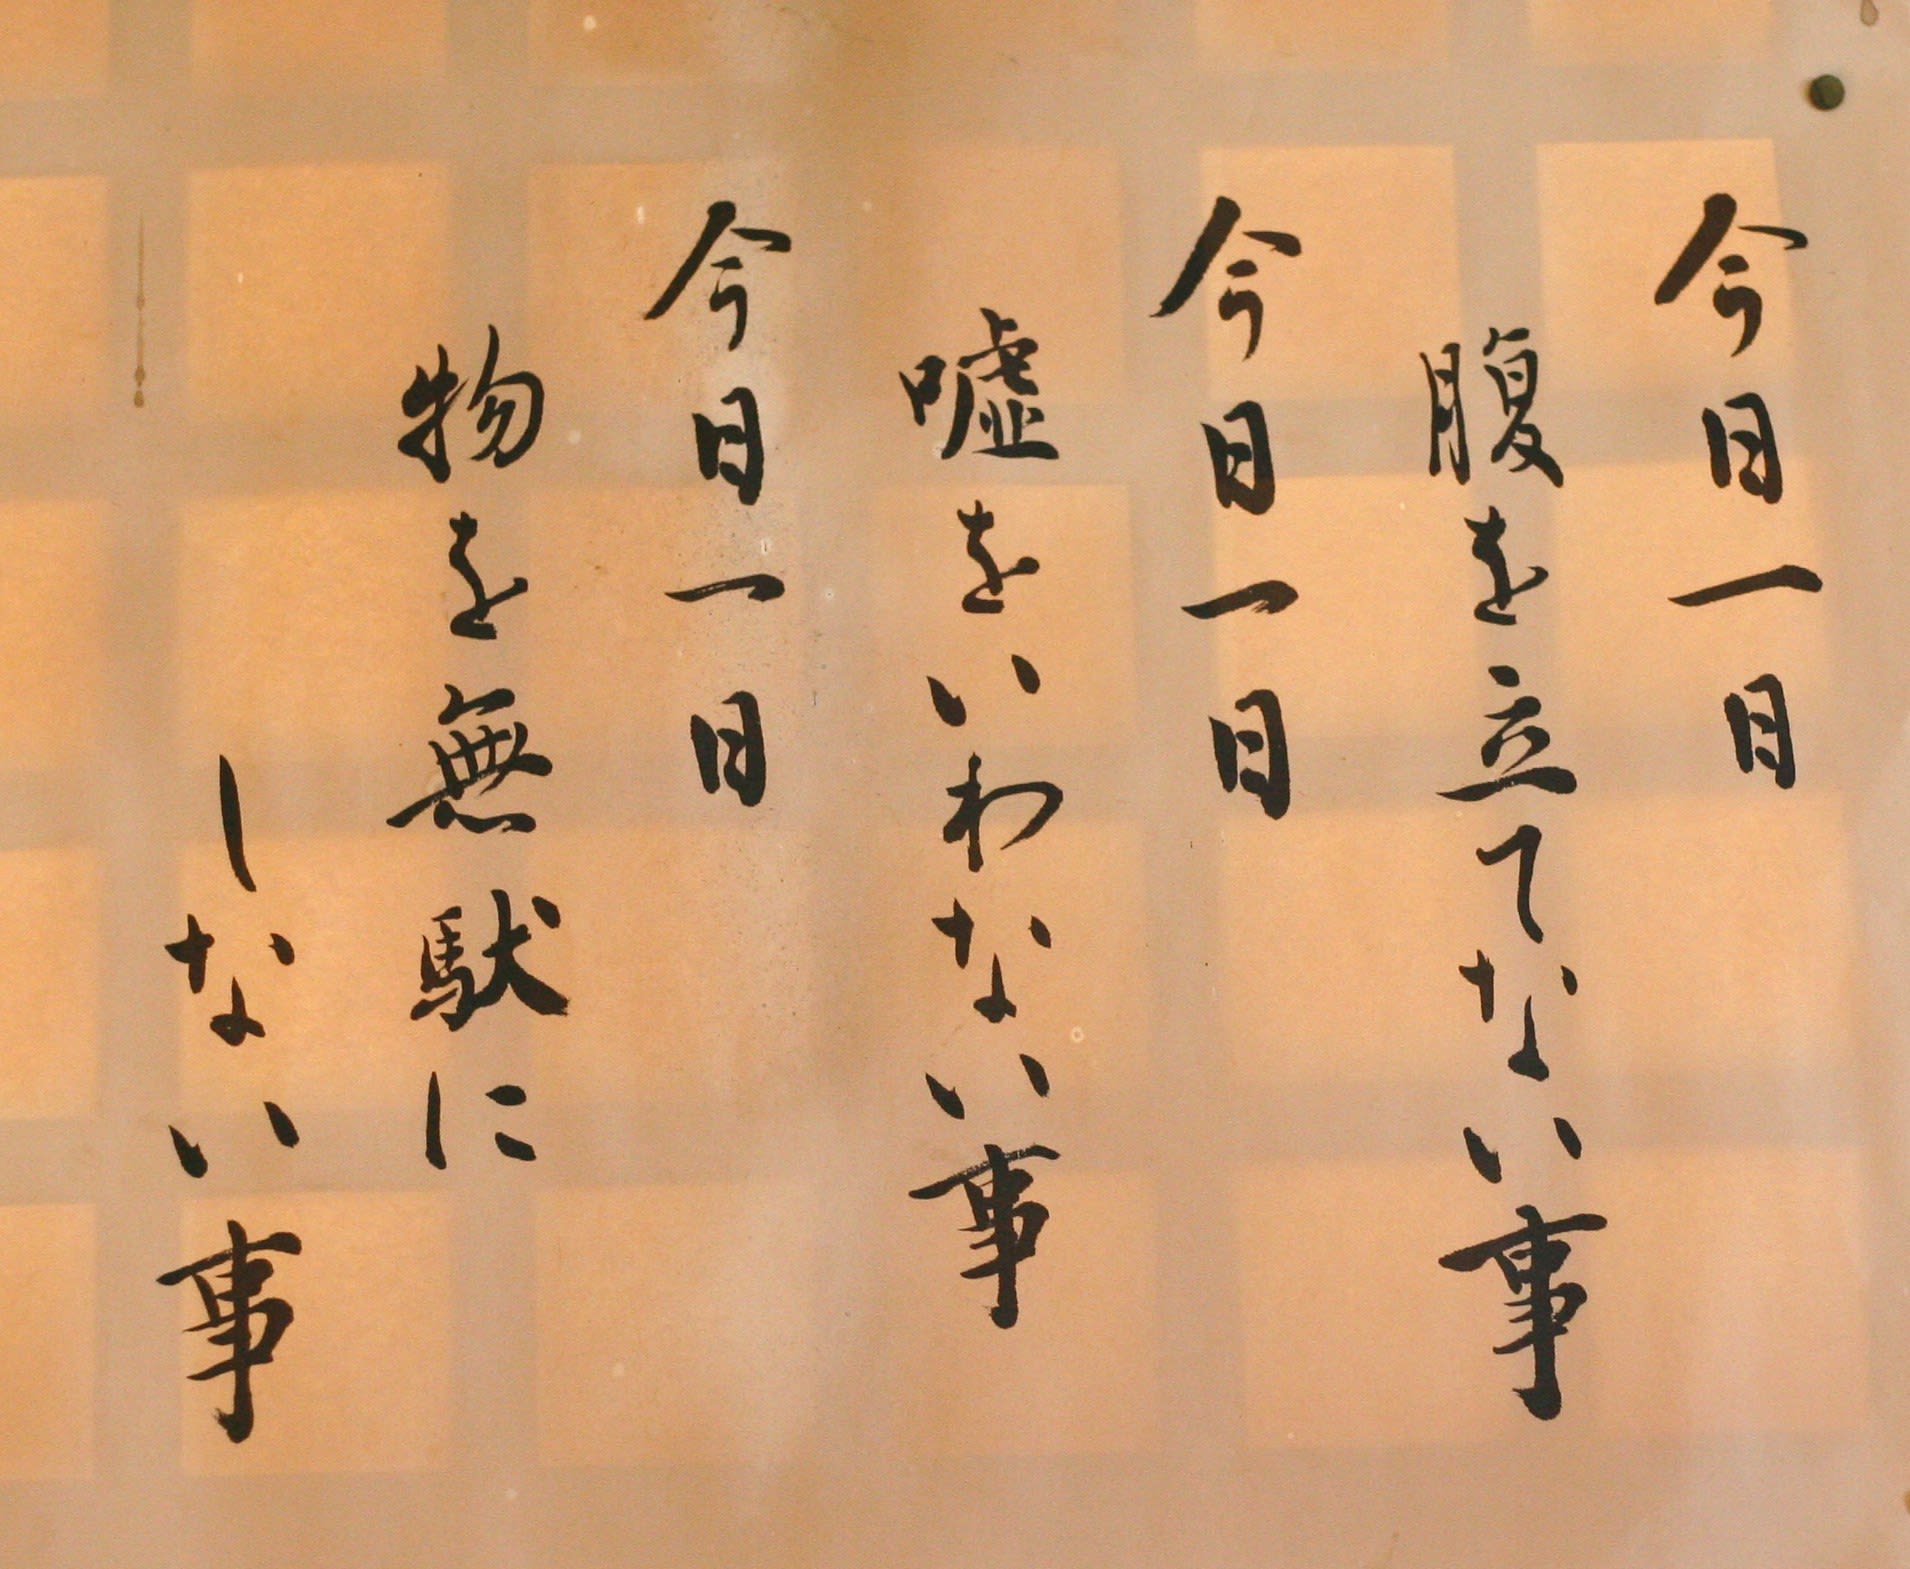 今日一日
腹を立てない事
今日一日
嘘をいわない事
今日一日
物を無駄に
しない事